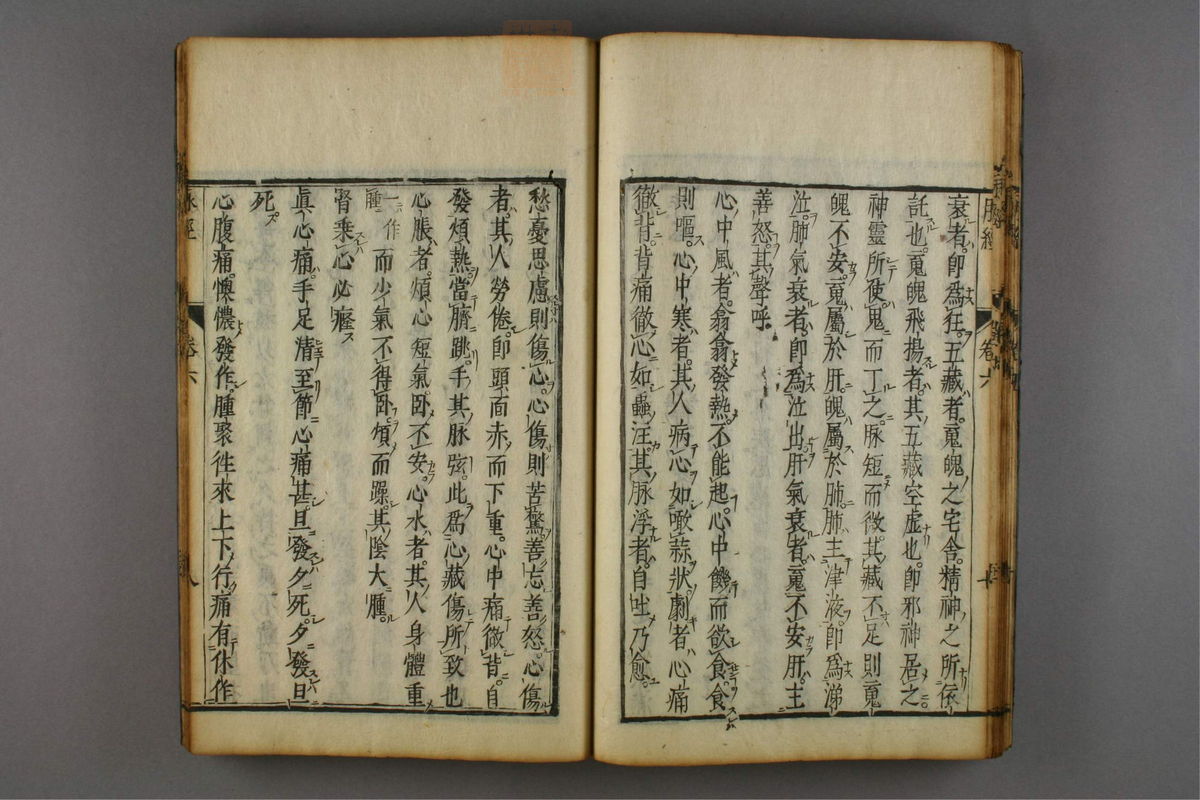 衰者即為狂五藏者䰟魄之宅舍精神之所依
託也䰟魄飛揚者其五藏空虛也即邪神居之
神靈所使鬼而下之脉短而微其藏不足則䰟
魄不安䰟屬於肝魄屬於肺肺主津液即為涕
泣肺氣衰者即為泣出肝氣衰者䰟不安肝主
善怒其聲呼
心中風者翕翕發熱不能起心中饑而欲食食
則嘔心中寒者其人病心如噉蒜狀劇者心痛
徹背背痛徹心如蟲注其脉浮者自吐乃愈
愁憂思慮則傷心心傷則苦驚善忘善怒心傷
者其人勞倦即頭面赤而下重心中痛徹背自
發煩熱當臍跳手其脉弦此為心藏傷所致也
心脹者煩心短氣卧不安心水者其人身體重
一作腫而少氣不得卧煩而躁其陰大腫
腎乘心必癃
真心痛手足清至節心痛甚旦發夕死夕發旦
死
心腹痛懊憹發作腫聚往來上下行痛有休作
脉經
卷六